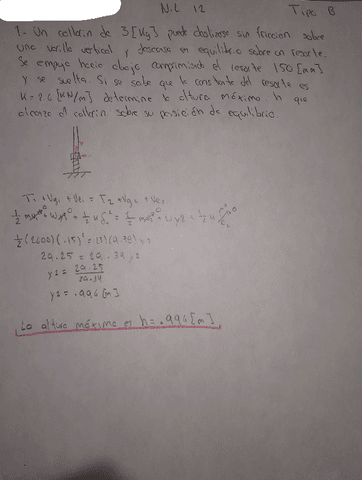 N.L 12 Tipo B
1.- Un collarín de 3[Kg] puede deslizarse sin fricción sobre
una varilla vertical y descansa en equilibrio sobre un resorte.
Se empuja hacia abajo comprimiendo el resorte 150[mm]
y se suelta. Si se sabe que la constante del resorte es
K=2.6[KN/m] determine la altura máxima h que
alcanza el collarín sobre su posición de equilibrio.
T1 + Vg1 + Ve1 = T2 + Vg2 + Ve2
½(2600)(.15)² = (3)(9.81) y2
29.25 =
y2 = 29.25
y2 = .996[m]
La altura máxima es h = .996[m]